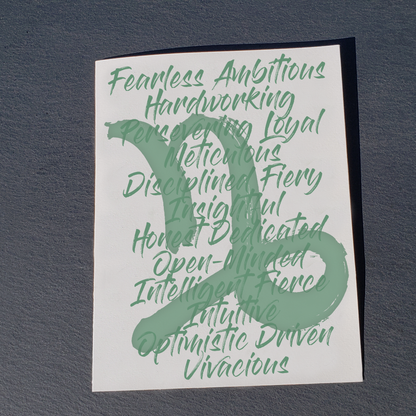 Fearless Ambitious
Hardworking
Persevering Loyal
Meticulous
Disciplined Fiery
Insightful
Honest Dedicated
Open-Minded
Intelligent Fierce
Intuitive
Optimistic Driven
Vivacious